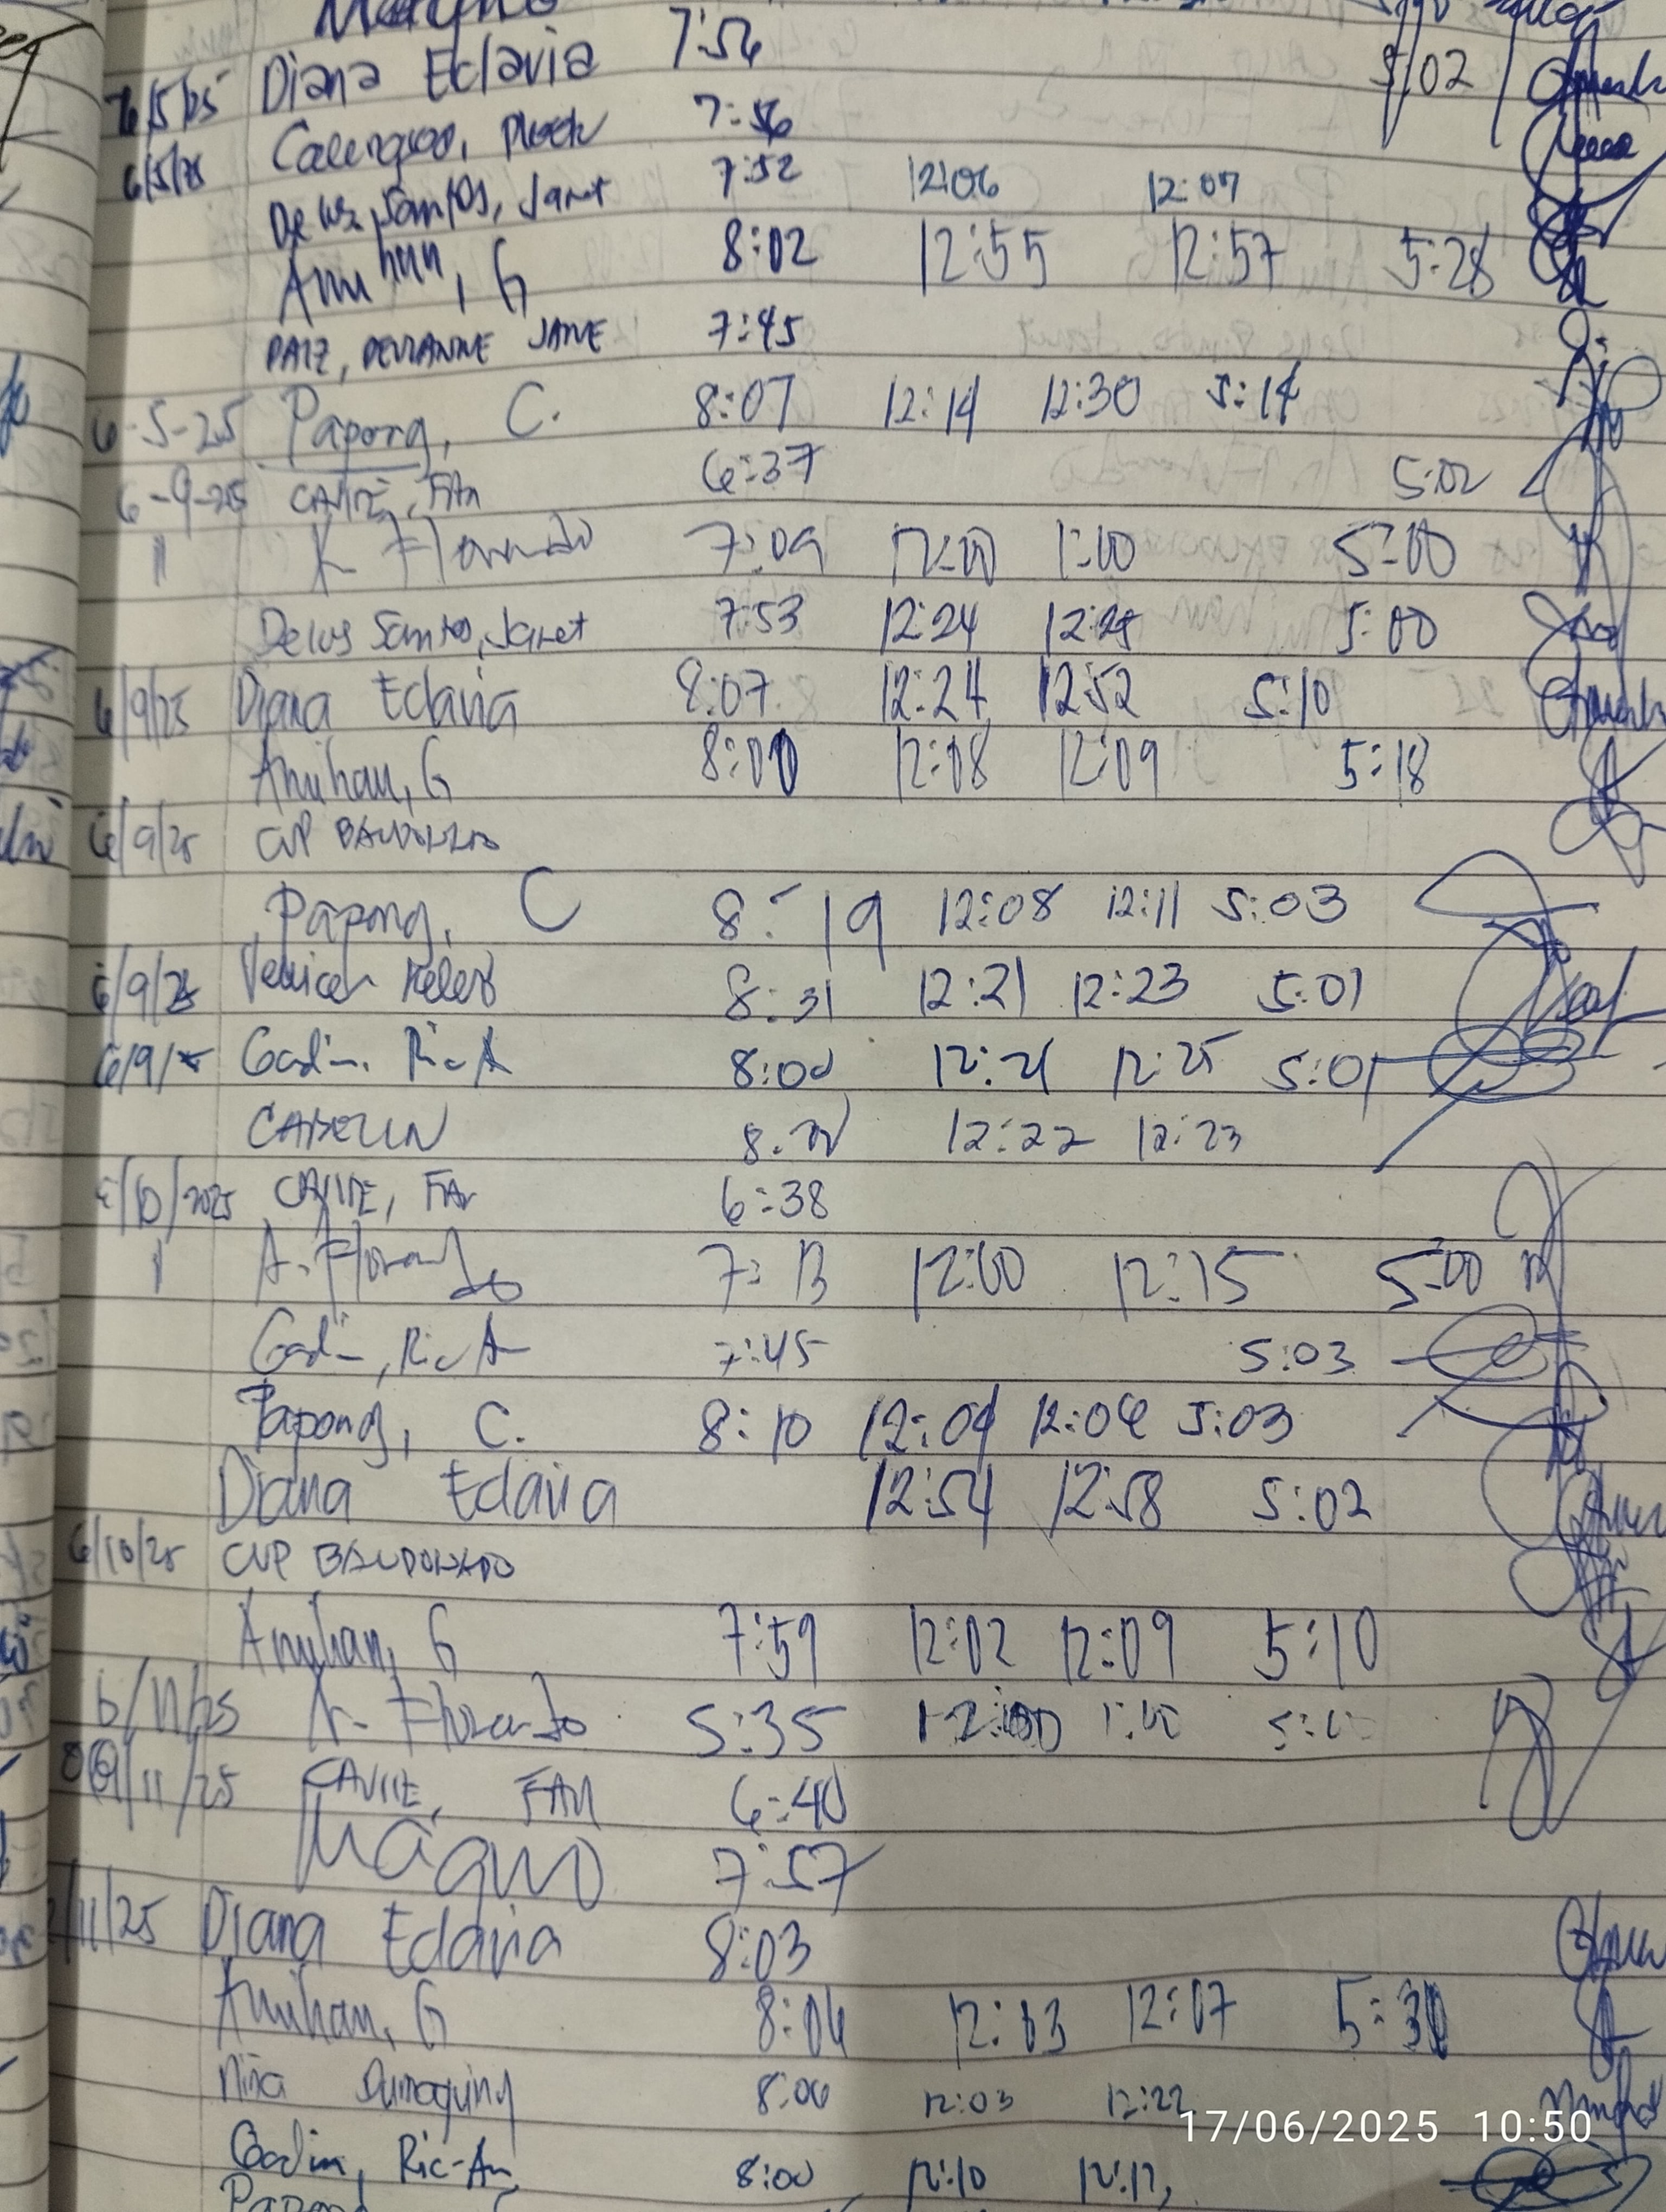 Diana Eclavia 7:56 5:02
6/5/25 7:56
6/5/25 Delos Santos, Janet 7:52 12:06 12:07
Anuhan, G 8:02 12:55 12:57 5:28
JANE 7:45
6-5-25 Papong, C. 8:07 12:14 12:30 5:14
6-9-25 CAVITE, FAN 6:37 5:02
11 A. Florando 7:09 12:00 1:00 5:00
Delos Santos, Janet 7:53 12:24 12:25 5:00
6/9/25 Diana Eclavia 8:07 12:24 12:52 5:10
Anuhan, G 8:00 12:08 12:09 5:18
6/9/25 CVP BAUDONADO
Papong, C 8:19 12:08 12:11 5:03
6/9/25 8:31 12:21 12:23 5:01
6/9/25 Gadin, Ric A 8:00 12:21 12:25 5:01
12:22 12:23
6/10/2025 CAVITE, FAN 6:38
11 A. Florando 7:13 12:00 12:15 5:00
Gadin, Ric A 7:45 5:03
Papong, C. 8:10 12:04 12:06 5:03
Diana Eclavia 12:54 12:58 5:02
6/10/25 CVP BAUDONADO
Anuhan, G 7:59 12:02 12:09 5:10
6/11/25 A. Florando 5:35 12:00 1:00
6/11/25 CAVITE, FAN 6:40
7:57
/11/25 Diana Eclavia 8:03
Anuhan, G 8:04 12:03 12:07 5:30
Niña Dumaquing 8:00 12:03 12:22
17/06/2025 10:50
Gadin, Ric-An 8:00 12:10 12:12